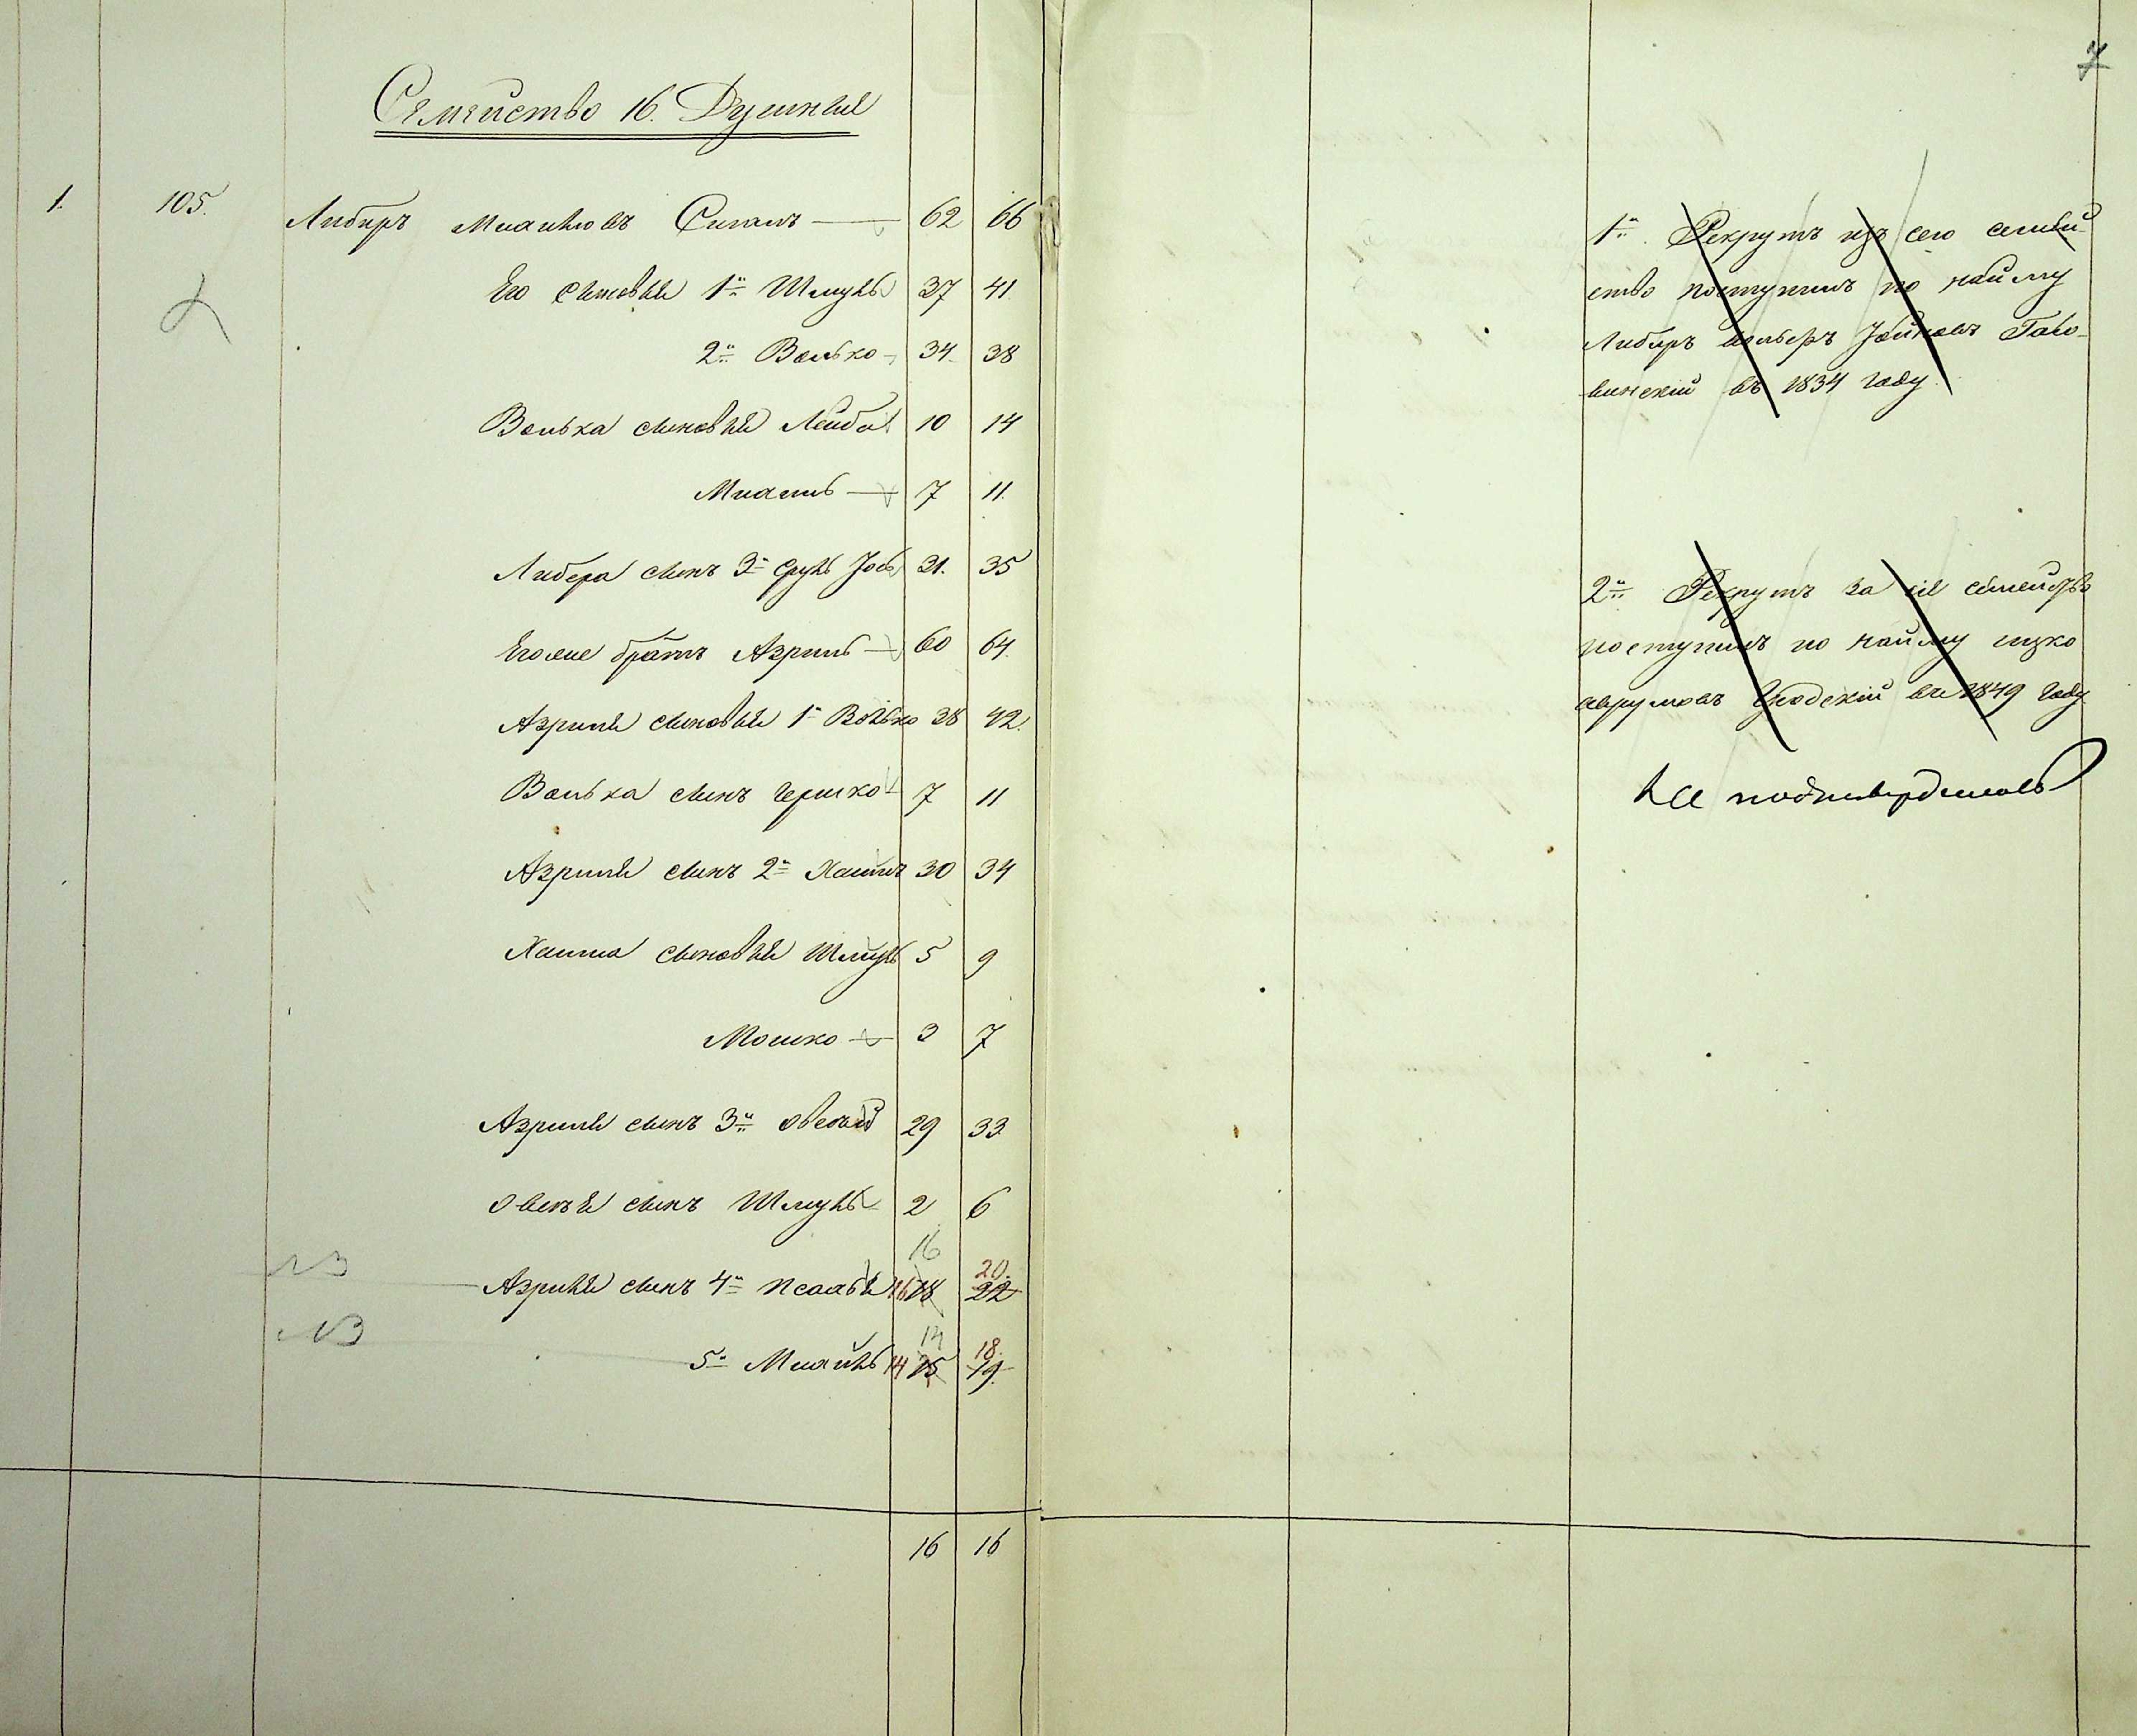 7
Семейство 16. Душныя
1. 105. Либеръ Миайловъ Сигалъ 62 66
Его сыновья 1й Шмуль 37 41
2й Волько 34 38
Волька сыновья Лейба 10 14
Миаиль 7 11
Либера сынъ 3й Сруль 31. 35
Егоже братъ Азриль 60 64
Азриля сыновья 1й Волько 38 42
Волька сынъ Гершко 7 11
Азриля сынъ 2й Хаимъ 30 34
Хаима сыновья Шмуль 5 9
Мошко 3 7
Азриля сынъ 3й Овсей 29 33
Овсея сынъ Шмуль 2 6
16 20.
NB Азриля сынъ 4й 16 18 22
14 18.
NB 5й Миаиль 14 15 19.
16 16
1й Рекрутъ изъ сего семей-
ство поступилъ по найму
Либеръ Іойновъ
винскій въ 1834 году.
2й Рекрутъ за сіе семейство
поступилъ по найму Ицко
Аврумовъ въ 1849 году
Не подтвердилось